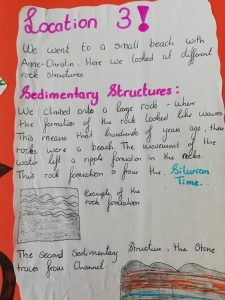 Location 3!
We went to a small beach with
Anne-Christin. Here we looked at different
rock structures.
Sedimentary Structures:
We climbed onto a large rock - where
the formation of the rock looked like waves
This means that hundreds of years ago, these
rocks were a beach. The movement of the
water left a ripple formation in the rocks.
This rock formation is from the Silurian
Time.
Example of the
rock formation
The second Sedimentary Structure, the Stone
traces from Channel.